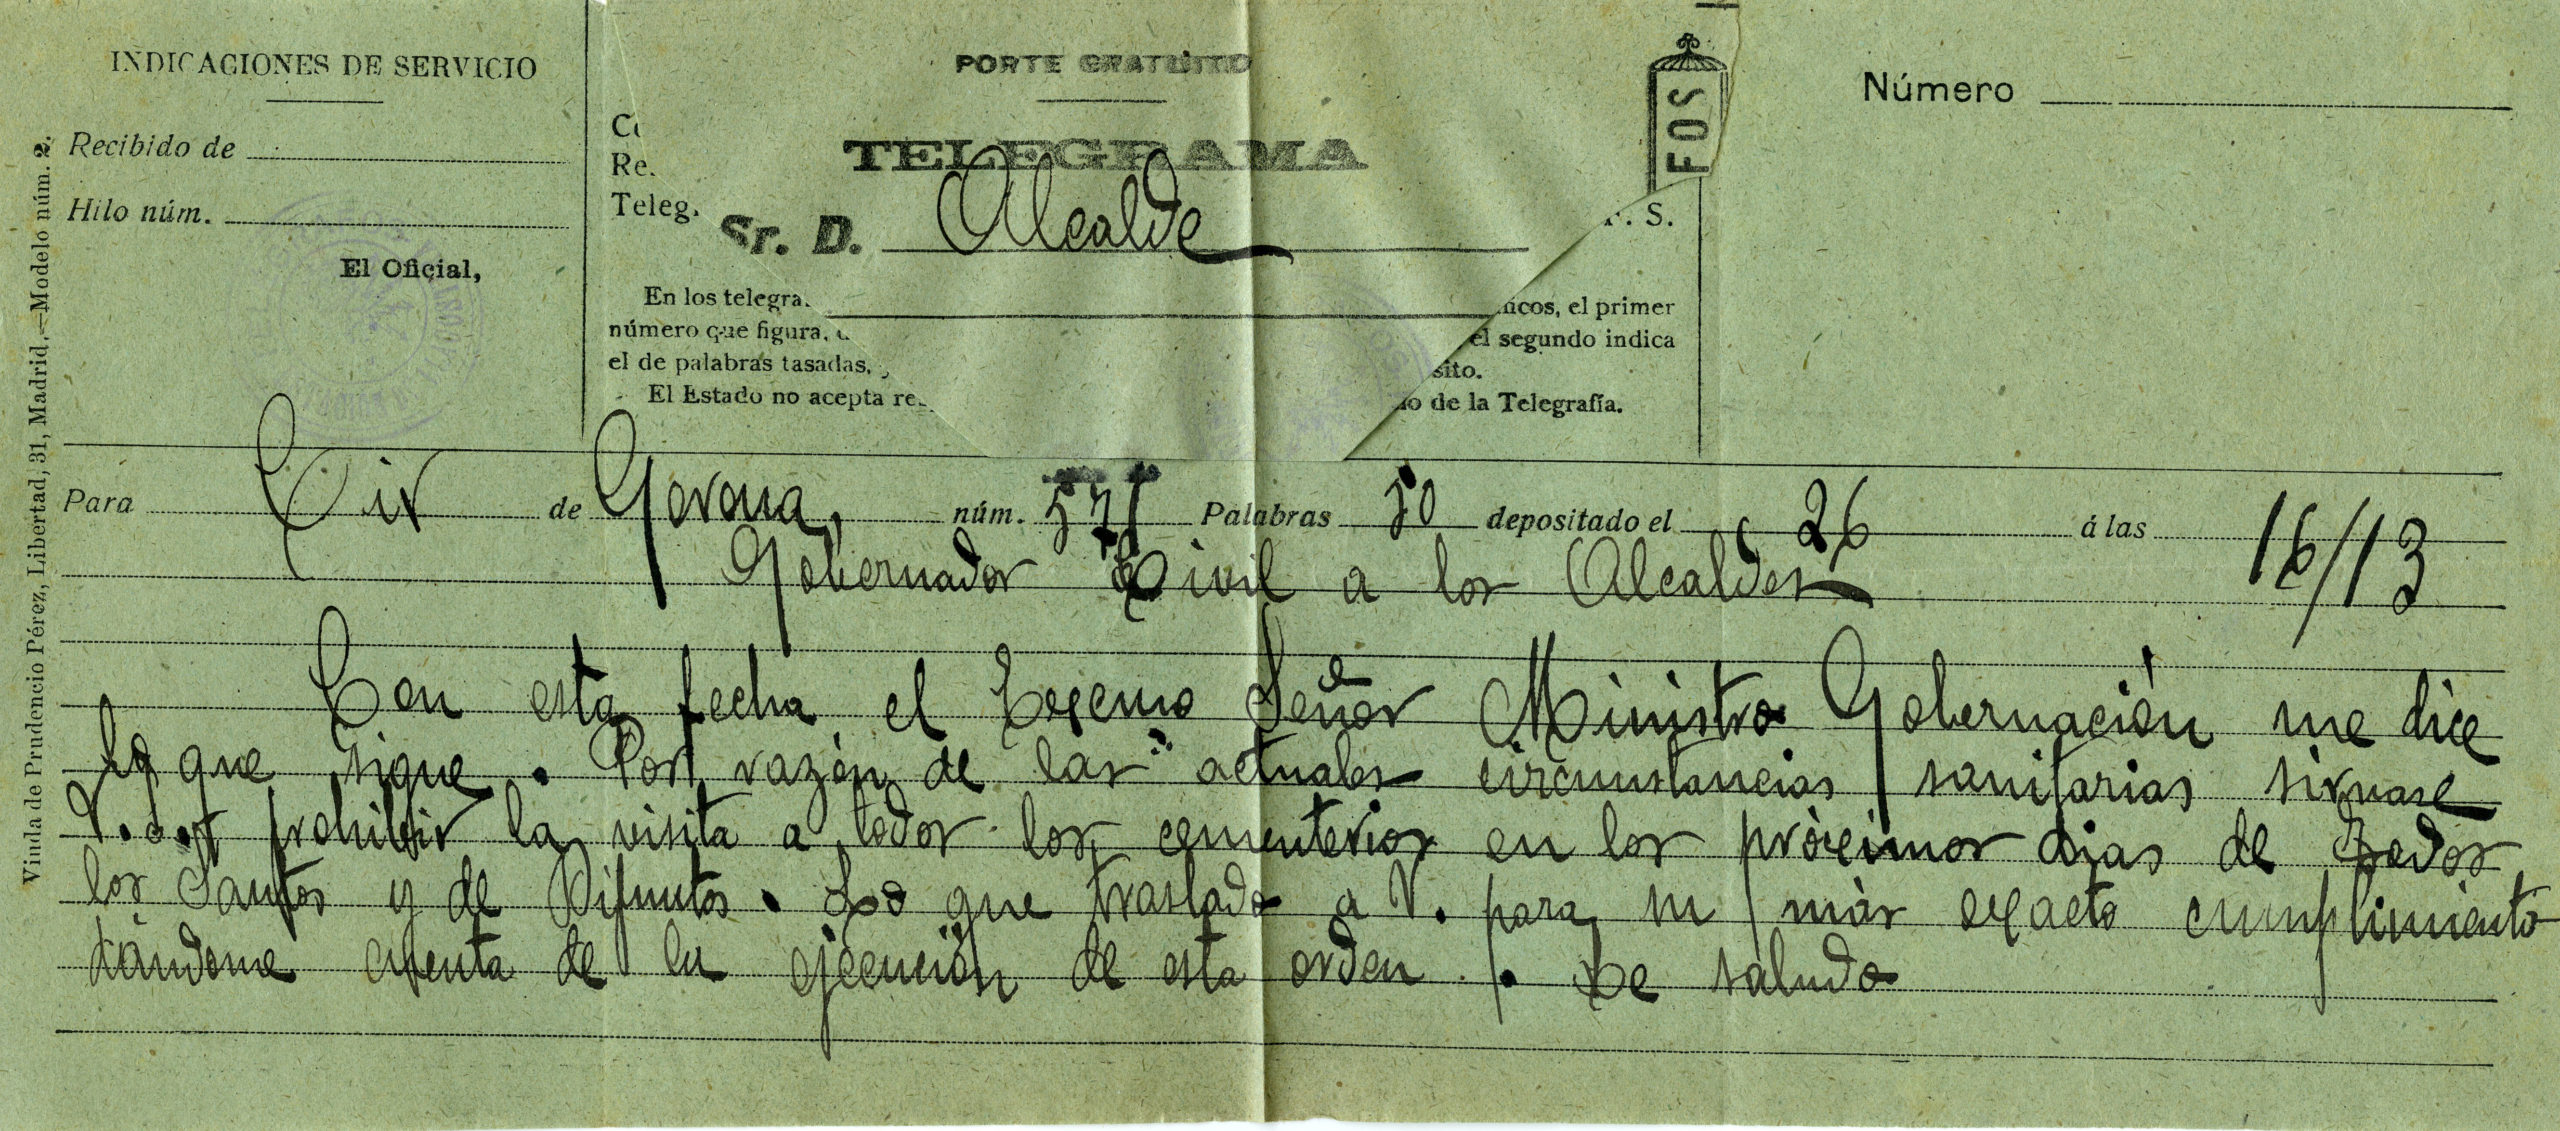 INDICACIONES DE SERVICIO
Recibido de
Hilo núm.
El Oficial,
Viuda de Prudencio Pérez, Libertad, 31, Madrid.—Modelo núm. 2.
PORTE GRATUITO
TELEGRAMA
Sr. D. Alcalde
FOS
Número
En los telegra
número que figura,
el de palabras tasadas,
El Estado no acepta
icos, el primer
el segundo indica
sito.
de la Telegrafía.
Para Cir de Gerona, núm. Palabras 50 depositado el 26 á las 16/13
Gobernador Civil a los Alcaldes
Con esta fecha el Excemo Señor Ministro Gobernación me dice
lo que sigue. Por razón de las actuales circunstancias sanitarias sirvase
V. prohibir la visita a todos los cementerios en los próximos dias de Todos
los Santos y de Difuntos. Lo que traslado a V. para su más exacto cumplimiento
dándome cuenta de la ejecución de esta orden. Le saludo